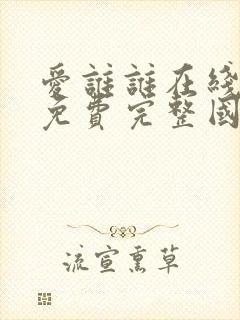 愛誰誰在线
免費完整國
流宣熏草